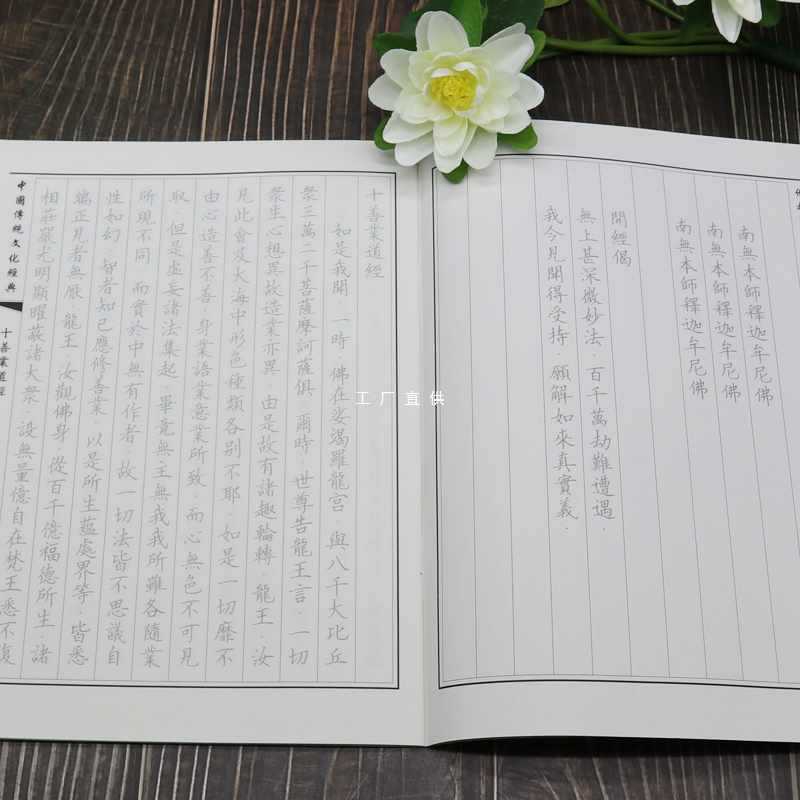 南無本師釋迦牟尼佛
南無本師釋迦牟尼佛
南無本師釋迦牟尼佛
開經偈
無上甚深微妙法．百千萬劫難遭遇．
我今見聞得受持．願解如來真實義．
十善業道經
如是我聞．一時．佛在娑竭羅龍宮．與八千大比丘
眾三萬二千菩薩摩訶薩俱．爾時．世尊告龍王言．一切
眾生心想異故造業亦異．由是故有諸趣輪轉．龍王．汝
見此會及大海中形色種類各別不耶．如是一切靡不
由心造善不善．身業語業意業所致．而心無色不可見
取．但是虛妄諸法集起．畢竟無主無我我所雖各隨業
所現不同．而實於中無有作者．故一切法皆不思議自
性如幻．智者知已應修善業．以是所生蘊處界等．皆悉
端正見者無厭．龍王．汝觀佛身．從百千億福德所生．諸
相莊嚴光明顯曜蔽諸大眾．設無量億自在梵王悉不復
中國傳統文化經典
十善業道經
工厂直供